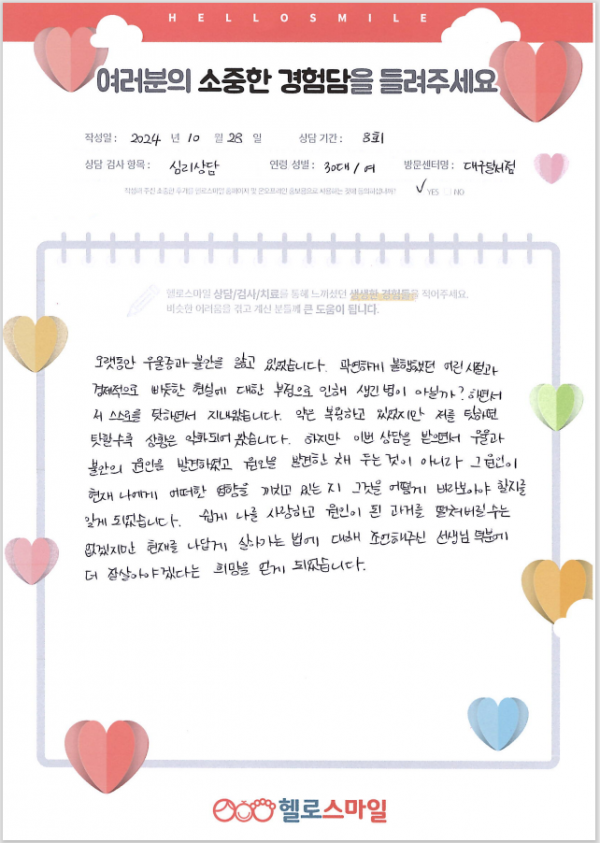 HELLOSMILE
여러분의 소중한 경험담을 들려주세요
작성일 : 2024 년 10 월 28 일 상담 기간 : 8회
상담 검사 항목 : 심리상담 연령 성별 : 30대 / 여 방문센터명 : 대구달서점
작성해 주신 소중한 후기를 헬로스마일 홈페이지 및 온오프라인 홍보용으로 사용하는 것에 동의하십니까? ✓ YES NO
헬로스마일 상담/검사/치료를 통해 느끼셨던 생생한 경험들을 적어주세요.
비슷한 어려움을 겪고 계신 분들께 큰 도움이 됩니다.
오랫동안 우울증과 불안을 앓고 있었습니다. 과연하게 불행했던 어린 시절과
경제적으로 빠듯한 현실에 대한 부정으로 인해 생긴 병이 아닐까? 하면서
스스로를 탓하면서 지내왔습니다. 약은 복용하고 있었지만 저를 탓하면
탓할수록 상황은 악화되어 갔습니다. 하지만 이번 상담을 받으면서 우울과
불안의 원인을 발견하였고 원인을 발견한 채 두는 것이 아니라 그 원인이
현재 나에게 어떠한 영향을 끼치고 있는 지 그것을 어떻게 바라보아야 할지를
알게 되었습니다. 쉽게 나를 사랑하고 원인이 된 과거를 떨쳐버릴 수는
없겠지만 현재를 나답게 살아가는 법에 대해 조언해주신 선생님 덕분에
더 잘살아야겠다는 희망을 얻게 되었습니다.
헬로스마일